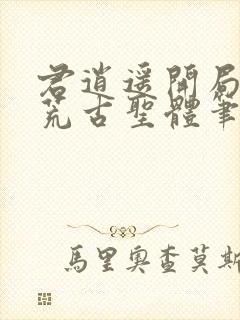 君逍遥開局
荒古聖體筆
馬里奧查莫斯